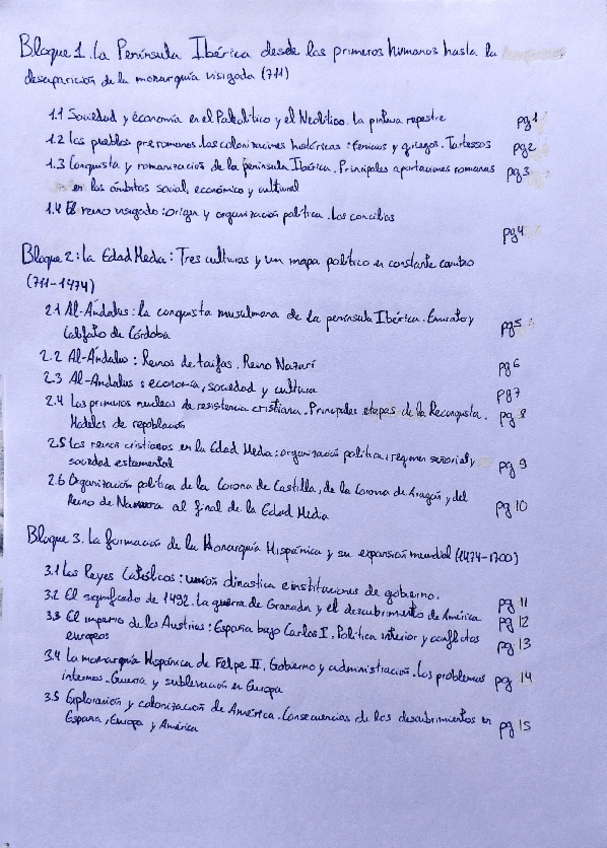 Bloque 1. La Península Ibérica desde los primeros humanos hasta la
desaparición de la monarquía visigoda (711)
1.1 Sociedad y economía en el Paleolítico y el Neolítico. La pintura rupestre pg 1
1.2 Los pueblos prerromanos. Las colonizaciones históricas: fenicios y griegos. Tartessos pg 2
1.3 Conquista y romanización de la península Ibérica. Principales aportaciones romanas pg 3
en los ámbitos social, económico y cultural
1.4 El reino visigodo: origen y organización política. Los concilios
pg 4
Bloque 2: La Edad Media: Tres culturas y un mapa político en constante cambio
(711-1474)
2.1 Al-Ándalus: la conquista musulmana de la península Ibérica. Emirato y
Califato de Córdoba pg 5
2.2 Al-Ándalus: Reinos de taifas. Reino Nazarí pg 6
2.3 Al-Andalus: economía, sociedad y cultura pg 7
2.4 Los primeros nucleos de resistencia cristiana. Principales etapas de la Reconquista. pg 8
Modelos de repoblación
2.5 Los reinos cristianos en la Edad Media: organización política, regimen señorial y
sociedad estamental pg 9
2.6 Organización política de la Corona de Castilla, de la Corona de Aragón y del
Reino de Navarra al final de la Edad Media pg 10
Bloque 3. La formación de la Monarquía Hispánica y su expansión mundial (1474-1700)
3.1 Los Reyes Católicos: unión dinastica e instituciones de gobierno. pg 11
3.2 El significado de 1492. La guerra de Granada y el descubrimiento de América pg 12
3.3 El imperio de los Austrias: España bajo Carlos I. Política interior y conflictos pg 13
europeos
3.4 La monarquía Hispánica de Felipe II. Gobierno y administración. Los problemas pg 14
internos. Guerra y sublevación en Europa
3.5 Exploración y colonización de América. Consecuencias de los descubrimientos en pg 15
España, Europa y América